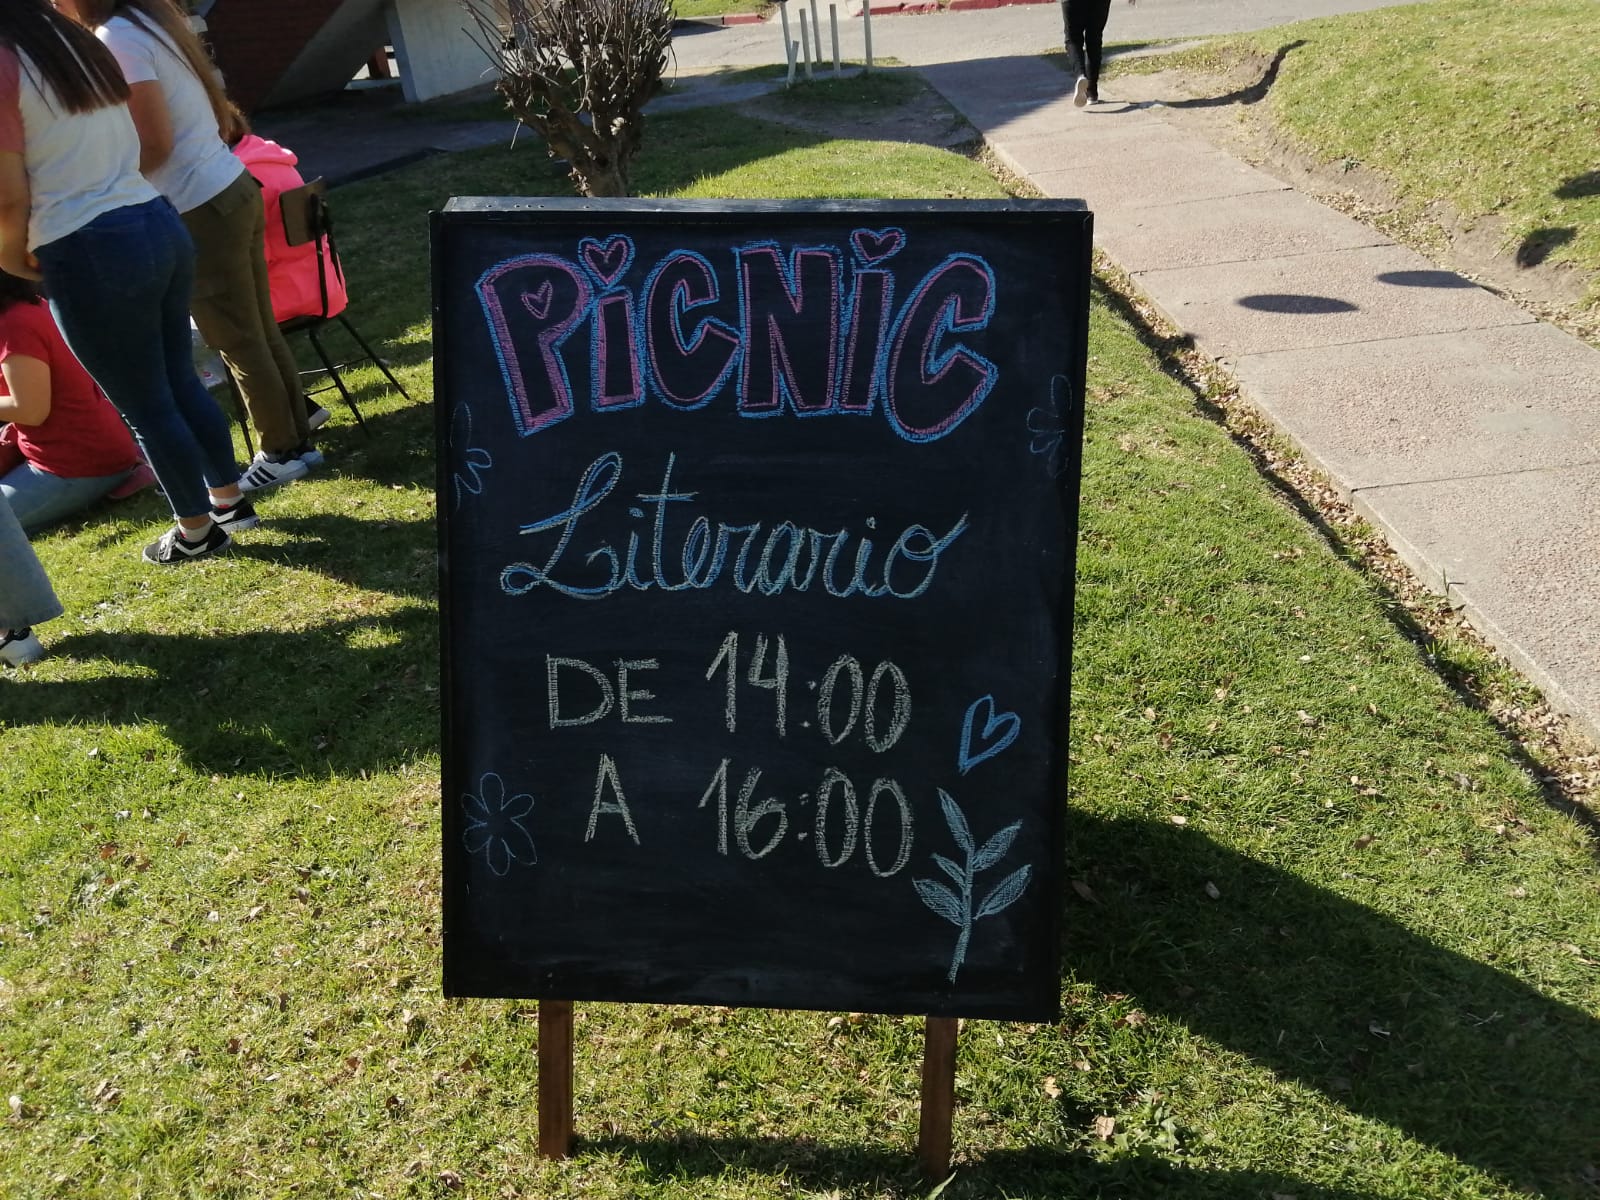 PiCNiC
Literario
DE 14:00
A 16:00